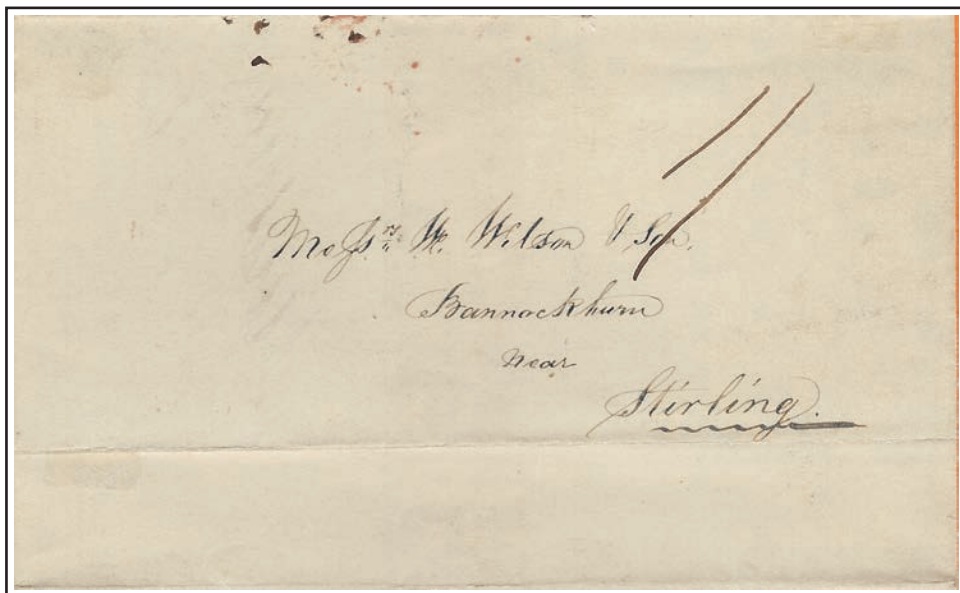 Messrs W. Wilson & Son.
Bannockburn
near
Stirling.